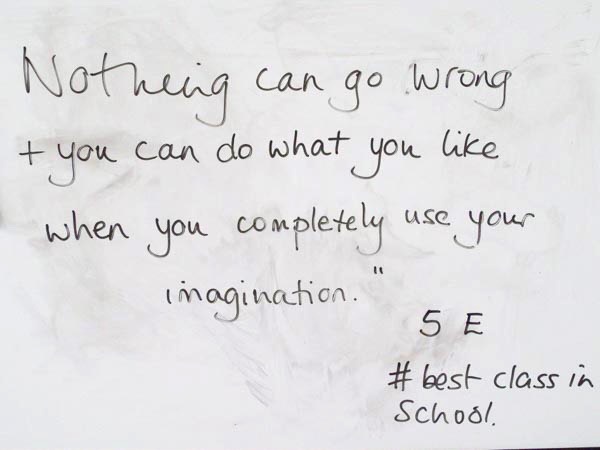 Nothing can go wrong
+ you can do what you like
when you completely use your
imagination."
5 E
# best class in
School.